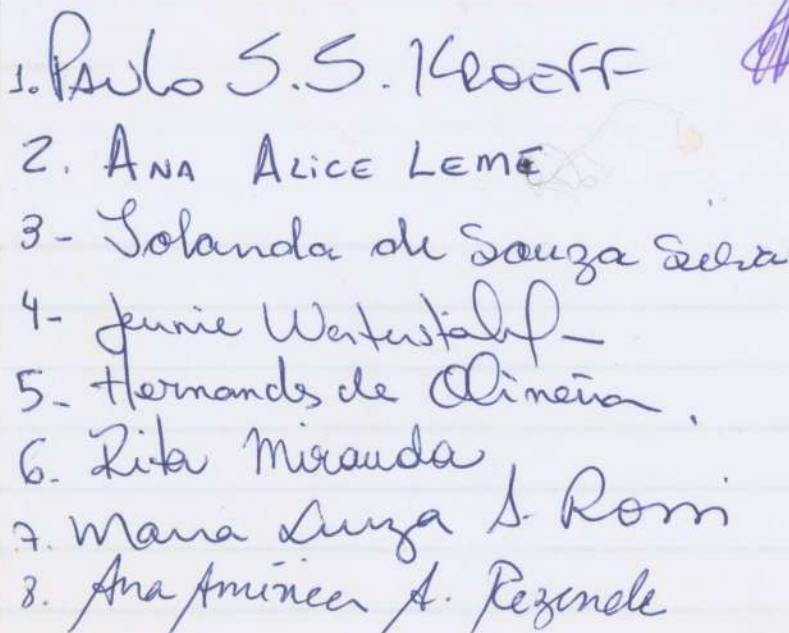 1. PAULO S.S. KROEFF
2. ANA ALICE LEME
3- Iolanda de Souza Silva
4- Jennie Westerstahl
5- Hernandes de Oliveira.
6. Rita Miranda
7. Maria Luiza S. Rossi
8. Ana A. Rezende